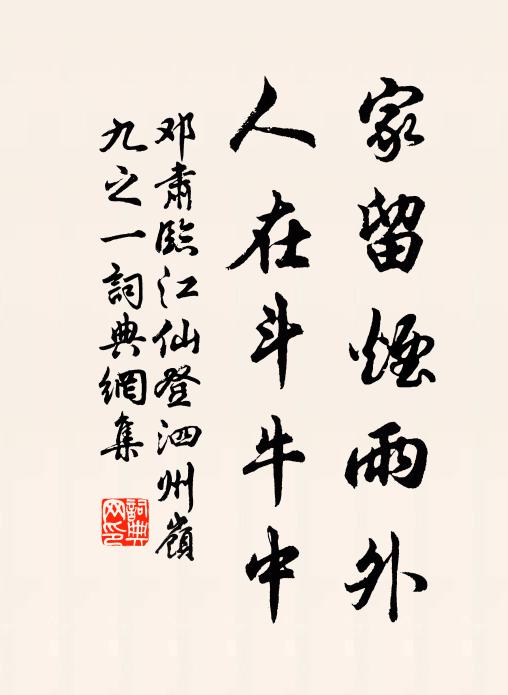 家留煙雨外
人在斗牛中
邓肅臨江仙登泗州嶺
九之一詞典網集
詞典
网印